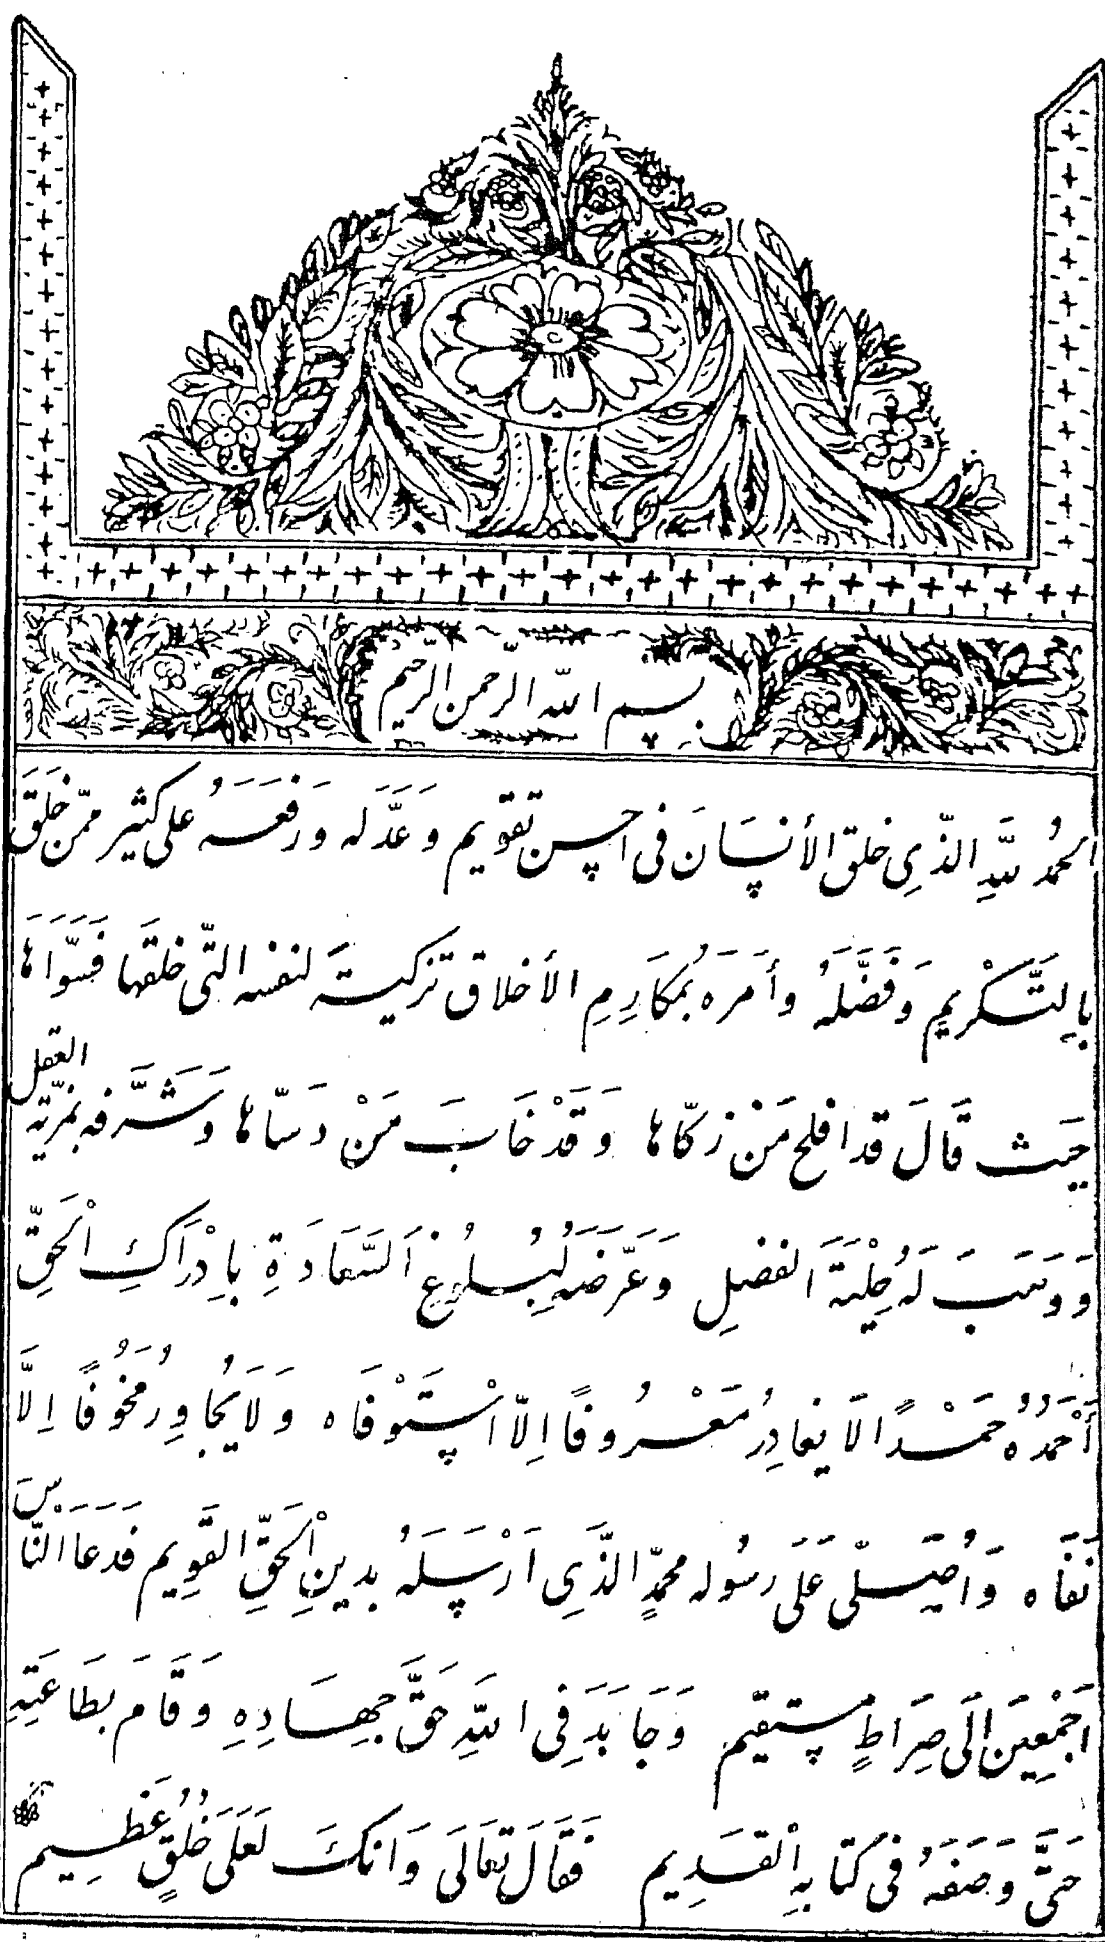 بسم الله الرّحمن الرّحيم
الحمدُ للهِ الذّي خلق الأنسَانَ في احسن تقويم وَعَدَّلَه وَرَفعَهُ على كثير ممّن خَلَقَ
بِالتَّكْرِيمِ وَفَضَّلَهُ وأمَرَه بمُكَارِمِ الأخلاق تزكيةً لنفسه التّي خلقَها فَسَوّاهَا
حيَث قَالَ قد افلح مَنْ زكّاها وَقَدْ خَابَ مَنْ دَسّاها وَشَرَّفه بمَزيّته العقل
وَوَهَبَ لَهُ حِليْةَ الفضلِ وَعَرَّضَه لِبُلُوغِ السَّعَادَةِ بِاِدْرَاكِ الْحَقِّ
أحْمَدُهُ حَمْدًا لَا يغادِرُ مَعْرُوفًا اِلّا اسْتَوْفَاه وَلَا يُجَاوِرُ مَخُوفًا اِلَّا
نَفَاه وَاُصَلّى عَلَى رسُوله محمدٍ الذَّى اَرْسَلَهُ بدينِ الْحَقِّ القَوِيم فَدَعَا الْنّاسَ
اَجْمعِينَ اِلَى صِرَاطٍ مستقيم وَجَاهَدَ فِى اللهِ حَقَّ جِهَادِهِ وَقَامَ بطَاعَتِهِ
حَتَّى وَصَفَهُ فى كتابهِ اْلقَدِيم فَقَالَ تعَالَى وَانكَ لَعَلَى خُلُقٍ عَظِيم